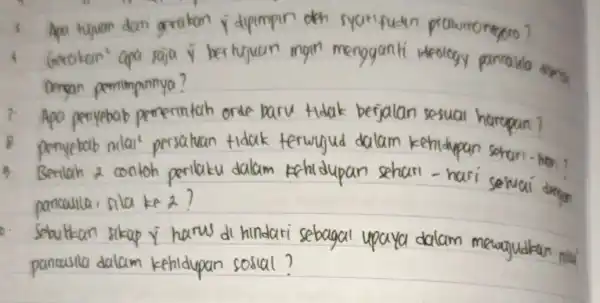 3 Apa tujuan dan gerakan ÿ dipimpin oleh syarifudin prawiranegara?
4 Gerakan² apa saja ÿ bertujuan ingin mengganti ideology pancasila
dengan pemimpinnya?
7. Apa penyebab pemerintah orde baru tidak berjalan sesuai harapan?
8 penyebab nilai² persatuan tidak terwujud dalam kehidupan sehari-hari?
9 Berilah 2 contoh perilaku dalam kehidupan sehari-hari sesuai dengan
pancasila, sila ke 2?
0. Sebutkan sikap ÿ harus di hindari sebagai upaya dalam mewujudkan nilai
pancasila dalam kehidupan sosial?